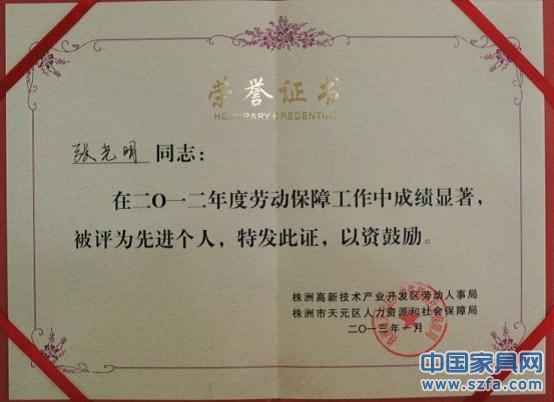 荣誉证书
HONORARY CREDENTIAL
张光明 同志：
在二〇一二年度劳动保障工作中成绩显著，
被评为先进个人，特发此证，以资鼓励。
株洲高新技术产业开发区劳动人事局
株洲市天元区人力资源和社会保障局
二〇一三年一月
中国家具网
www.szfa.com